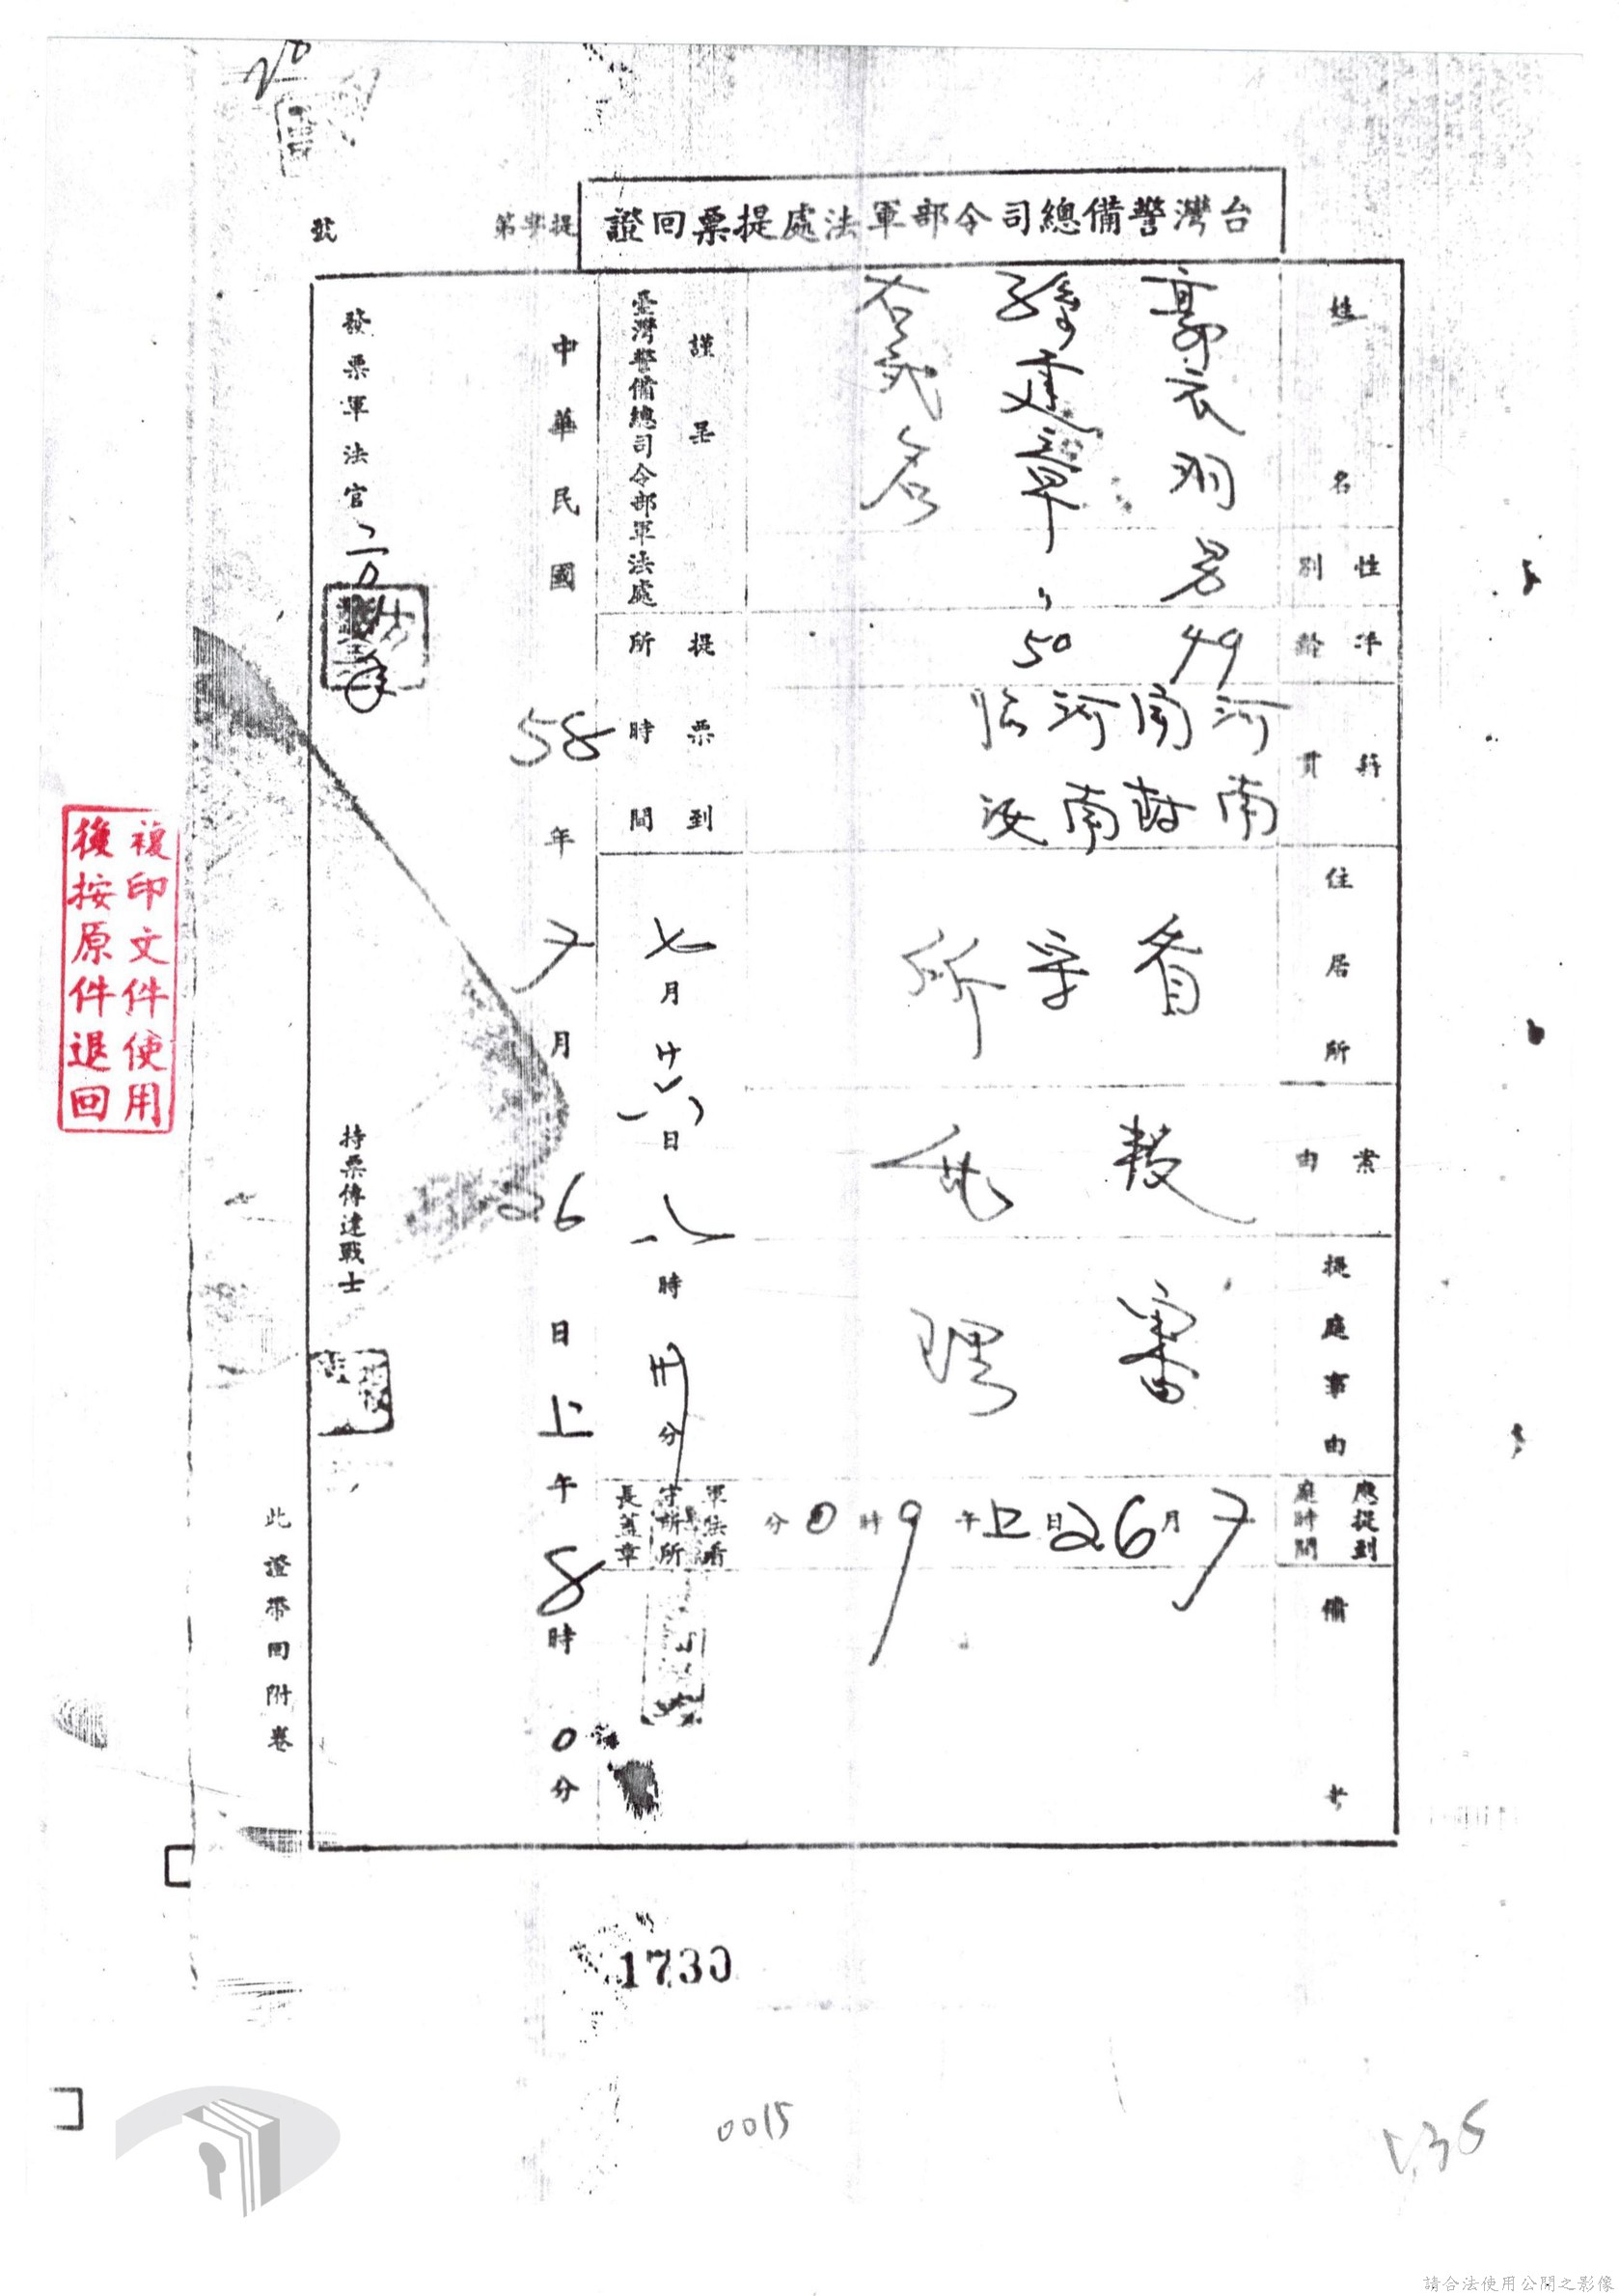 台灣警備總司令部軍法處提票回證
提字第
號
姓名
郭衣洞
孫建章
右貳名
性別
男
〃
年齡
49
50
籍貫
河南
開封
河南
臨汝
住居所
看守所
案由
叛亂
提庭事由
審理
應提到庭時間
7月26日上午9時0分
備考
謹呈
臺灣警備總司令部軍法處
提票到所時間
七月廿六日八時卅分
軍法看守所所長蓋章
中華民國58年7月26日上午8時0分
發票軍法官
持票傳達戰士
此證帶回附卷
複印文件使用
後按原件退回
1730
0015
請合法使用公開之影像